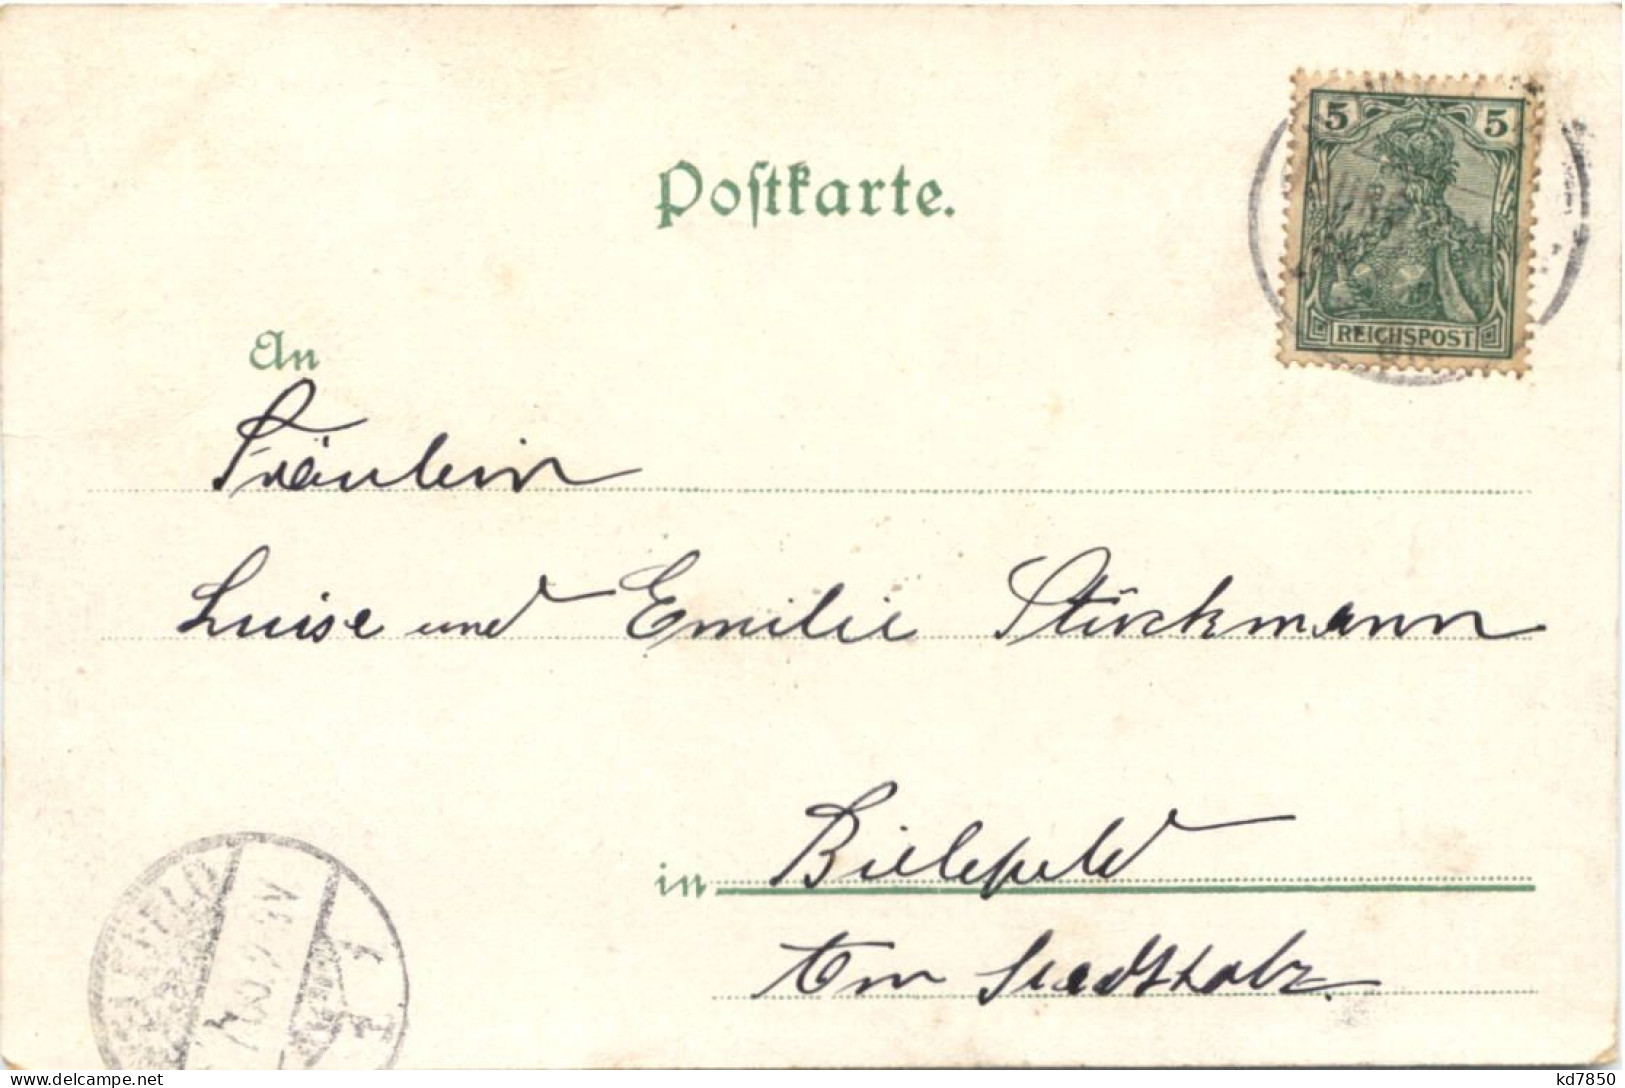 Postkarte.
5 5
REICHSPOST
An
Fräulein
Luise und Emilie Stückmann
in Bielefeld
Am Stadtholz.
BIELEFELD
delcampe.net
kd7850